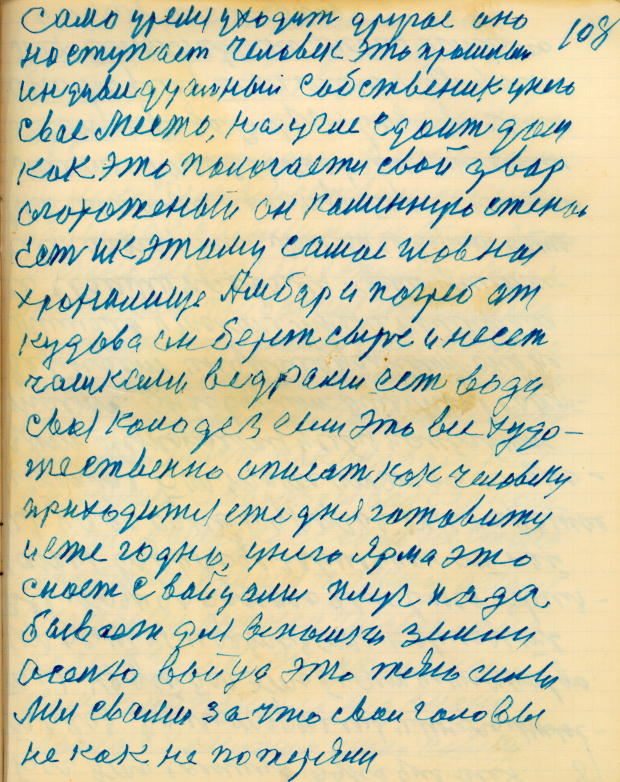 само время уходит другое оно 108
наступает человек это прошлый
индивидуалный собственик унего
свое место, на угле стоит дом
как это пологаети свой двор
огороженый он каменную стеною
ест и к этому самое главная
хранилище Амбар и погреб от
кудова он берет сырое и несет
чашками ведрами ест вода
свой колодез если это все худо-
жественно описат как человеку
приходится еже дня готовит
и еже годно, у него Ярма это
плуг нада
бывает для вспашки земли
осеню это
мы свами за что свои головы
не как не потеряли